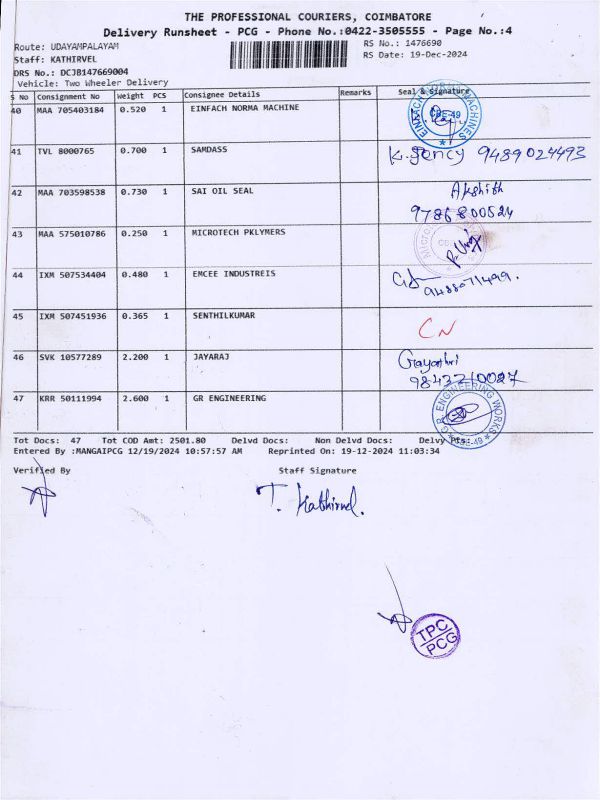 THE PROFESSIONAL COURIERS, COIMBATORE
Delivery Runsheet - PCG - Phone No.:0422-3505555 - Page No.:4
Route: UDAYAMPALAYAM
RS No.: 1476690
Staff: KATHIRVEL
RS Date: 19-Dec-2024
DRS No.: DCJB147669004
Vehicle: Two Wheeler Delivery
S No Consignment No Weight PCS Consignee Details Remarks Seal & Signature
40 MAA 705403184 0.520 1 EINFACH NORMA MACHINE
EINFACH MACHINES CBE-49
41 TVL 8000765 0.700 1 SAMDASS
9489024493
42 MAA 703598538 0.730 1 SAI OIL SEAL
Akshith
9786800524
43 MAA 575010786 0.250 1 MICROTECH PKLYMERS
44 IXM 507534404 0.480 1 EMCEE INDUSTREIS
9488071499.
45 IXM 507451936 0.365 1 SENTHILKUMAR
CN
46 SVK 10577289 2.200 1 JAYARAJ
Gayathri
9843210027
47 KRR 50111994 2.600 1 GR ENGINEERING
G R ENGINEERING WORKS CBE-49
Tot Docs: 47 Tot COD Amt: 2501.80 Delvd Docs: Non Delvd Docs: Delvy Pts:
Entered By :MANGAIPCG 12/19/2024 10:57:57 AM Reprinted On: 19-12-2024 11:03:34
Verified By Staff Signature
T. Kathirvel.
TPC
PCG